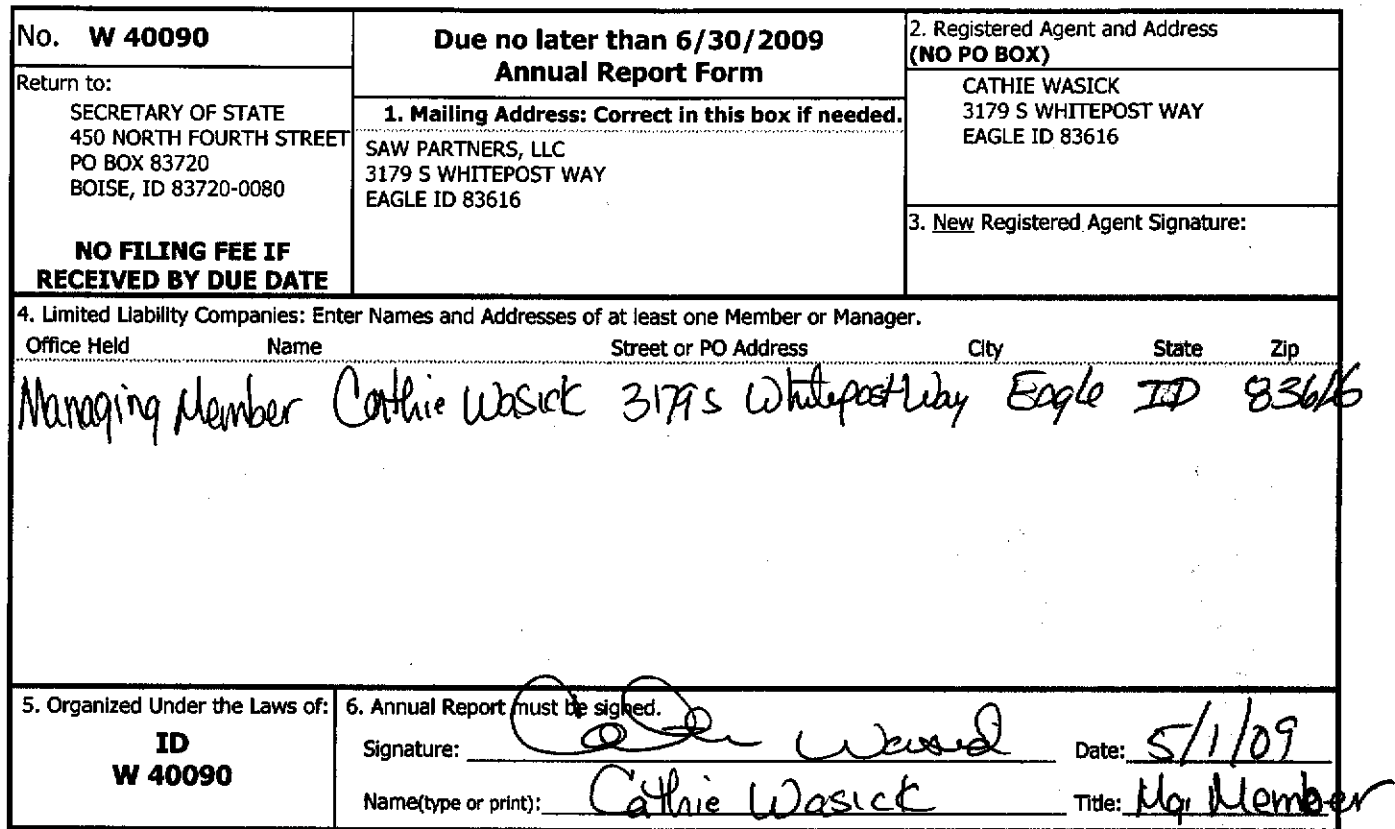 No. W 40090
Return to:
SECRETARY OF STATE
450 NORTH FOURTH STREET
PO BOX 83720
BOISE, ID 83720-0080
NO FILING FEE IF
RECEIVED BY DUE DATE
Due no later than 6/30/2009
Annual Report Form
1. Mailing Address: Correct in this box if needed.
SAW PARTNERS, LLC
3179 S WHITEPOST WAY
EAGLE ID 83616
2. Registered Agent and Address
(NO PO BOX)
CATHIE WASICK
3179 S WHITEPOST WAY
EAGLE ID 83616
3. New Registered Agent Signature:
4. Limited Liability Companies: Enter Names and Addresses of at least one Member or Manager.
Office Held Name Street or PO Address City State Zip
Managing Member Cathie Wasick 3179 S Whitepost Way Eagle ID 83616
5. Organized Under the Laws of:
ID
W 40090
6. Annual Report must be signed.
Signature: Cathie Wasick Date: 5/1/09
Name(type or print): Cathie Wasick Title: Mgr Member